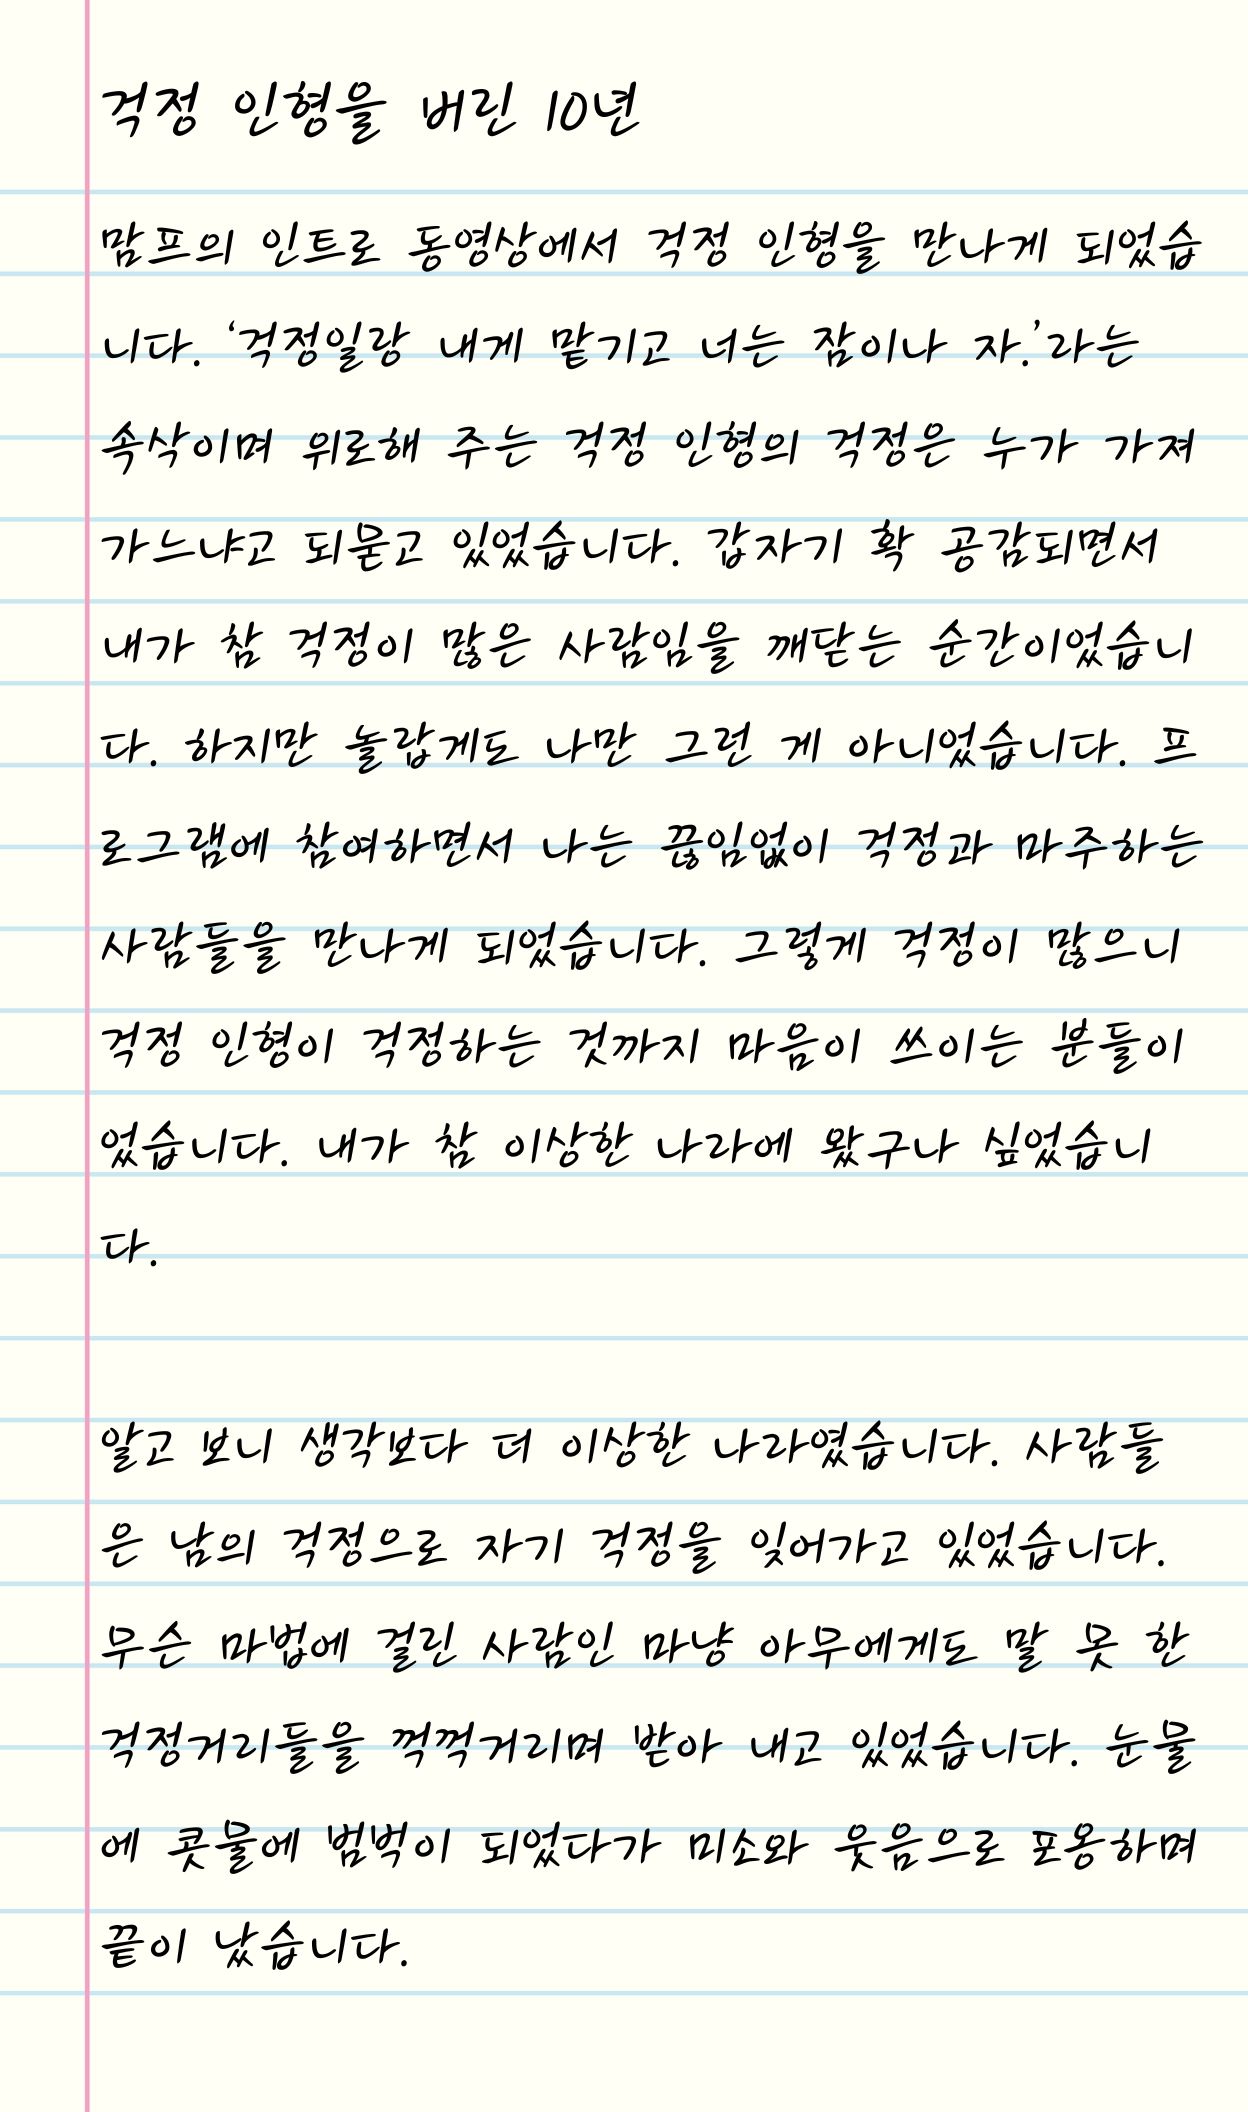 걱정 인형을 버린 10년
맘프의 인트로 동영상에서 걱정 인형을 만나게 되었습
니다. ‘걱정일랑 내게 맡기고 너는 잠이나 자.’라는
속삭이며 위로해 주는 걱정 인형의 걱정은 누가 가져
가느냐고 되묻고 있었습니다. 갑자기 확 공감되면서
내가 참 걱정이 많은 사람임을 깨닫는 순간이었습니
다. 하지만 놀랍게도 나만 그런 게 아니었습니다. 프
로그램에 참여하면서 나는 끊임없이 걱정과 마주하는
사람들을 만나게 되었습니다. 그렇게 걱정이 많으니
걱정 인형이 걱정하는 것까지 마음이 쓰이는 분들이
었습니다. 내가 참 이상한 나라에 왔구나 싶었습니
다.
알고 보니 생각보다 더 이상한 나라였습니다. 사람들
은 남의 걱정으로 자기 걱정을 잊어가고 있었습니다.
무슨 마법에 걸린 사람인 마냥 아무에게도 말 못 한
걱정거리들을 꺽꺽거리며 받아 내고 있었습니다. 눈물
에 콧물에 범벅이 되었다가 미소와 웃음으로 포옹하며
끝이 났습니다.